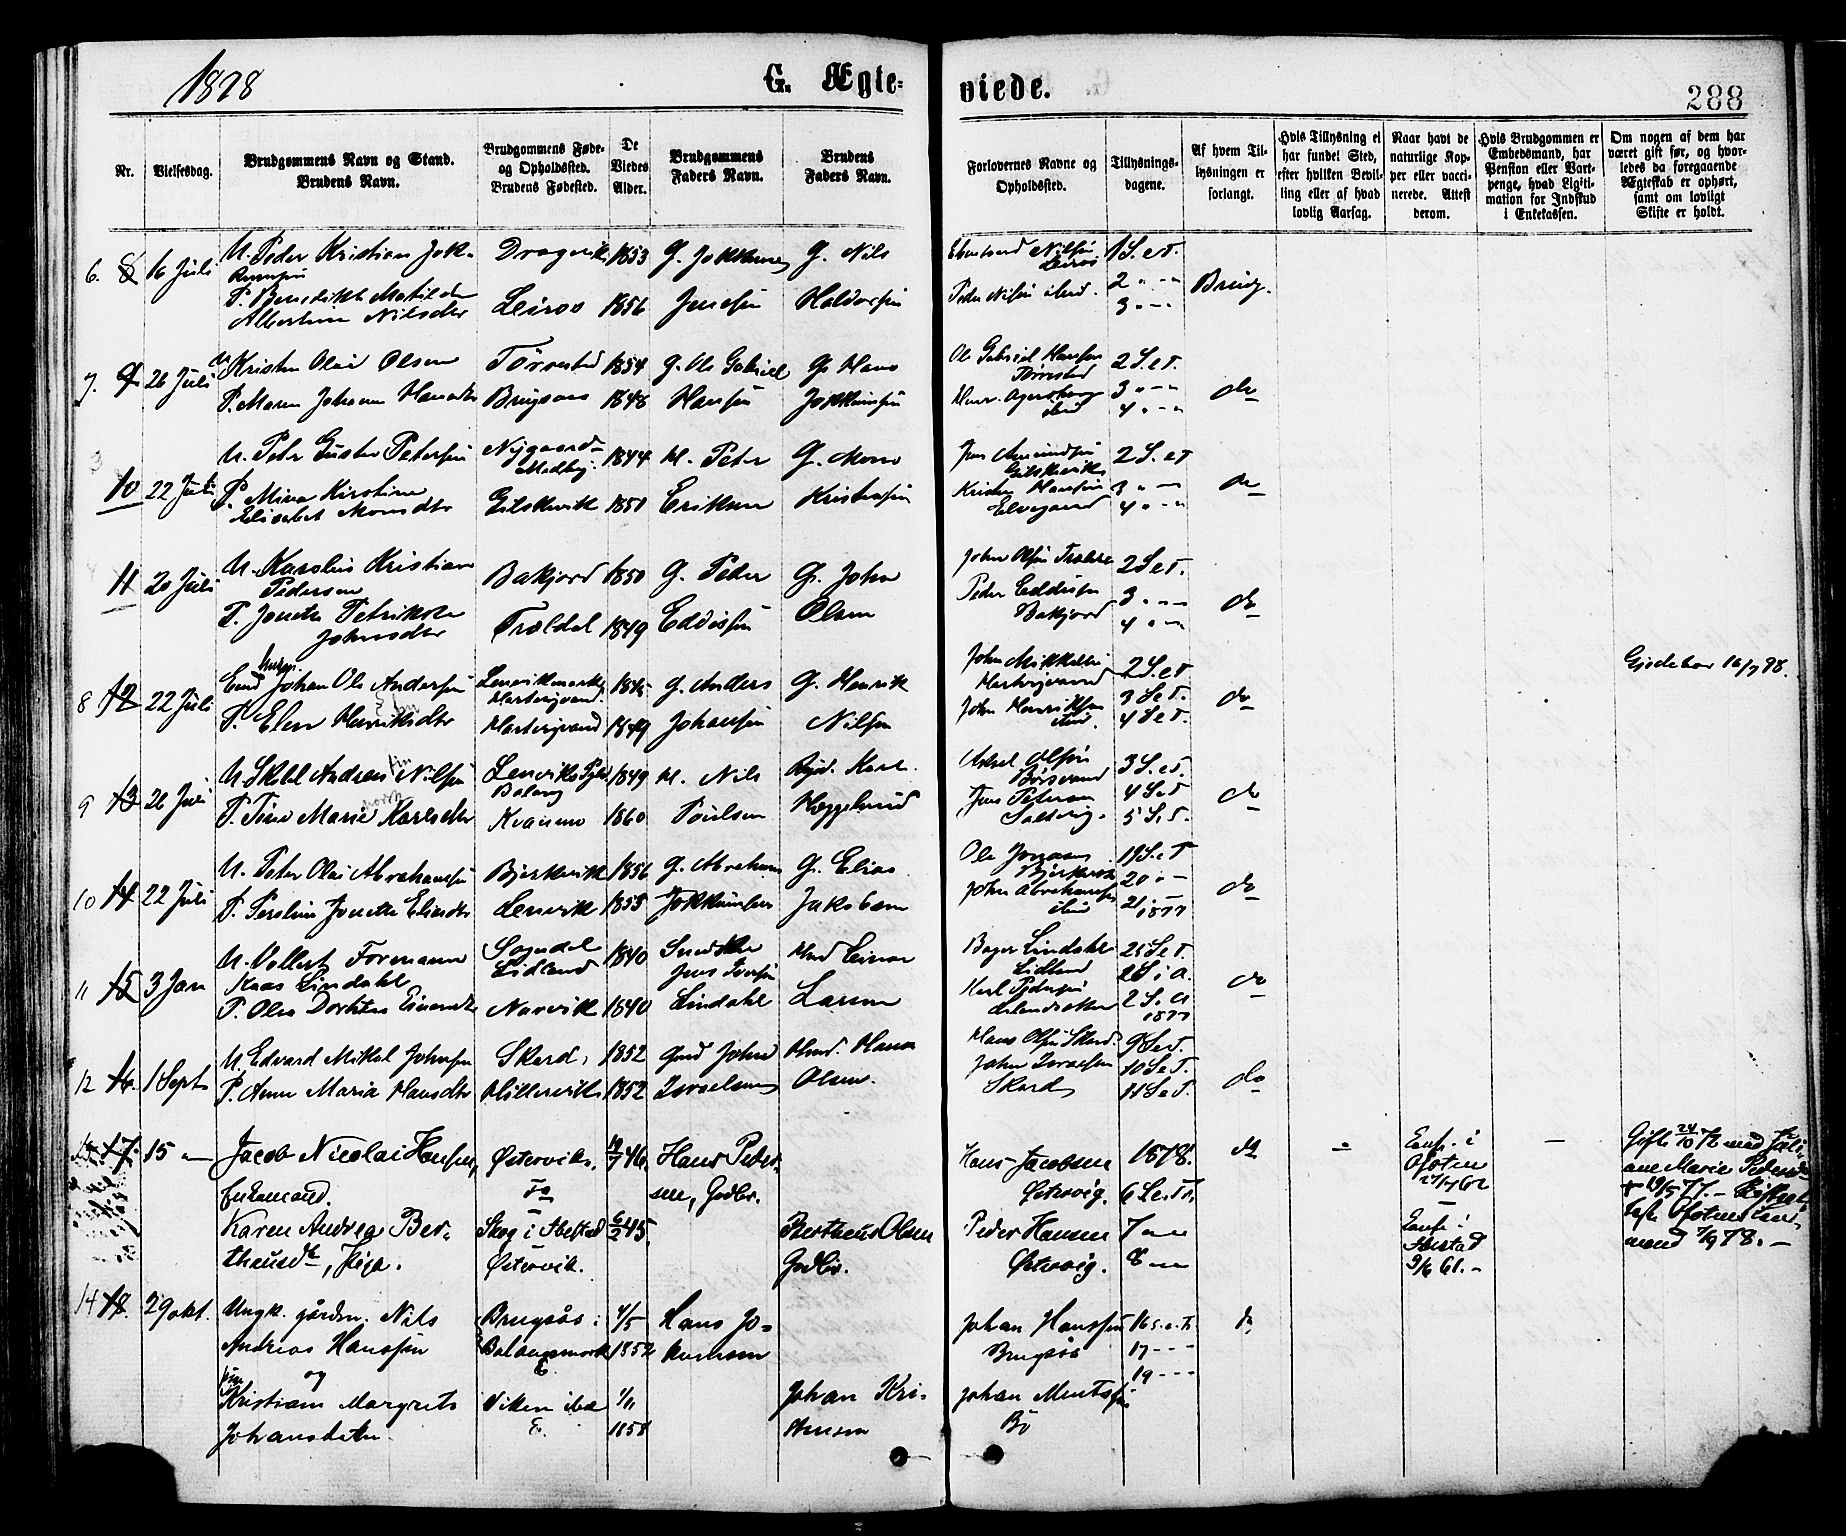 1878
G. Ægte-
viede.
288
Nr.
Vielsesdag.
Brudgommens Navn og Stand.
Brudens Navn.
Brudgommens Føde-
og Opholdssted.
Brudens Fødested.
De
Viedes
Alder.
Brudgommens
Faders Navn.
Brudens
Faders Navn.
Forlovernes Navne og
Opholdssted.
Tillysnings-
dagene.
Af hvem Til-
lysningen er
forlangt.
Hvis Tillysning ei
har fundet Sted,
efter hvilken Bevil-
ling eller af hvad
lovlig Aarsag.
Naar havt de
naturlige Kop-
per eller vacci-
nerede. Attest
derom.
Hvis Brudgommen er
Embedsmand, har
Pension eller Vart-
penge, hvad Ligiti-
mation for Indskud
i Enkekassen.
Om nogen af dem har
været gift før, og hvor-
ledes da foregaaende
Ægteskab er ophørt,
samt om lovligt
Skifte er holdt.
6. 8 16 Juli
U. Peder Kristian Jok-
P. Benedikte Matilde
Albertine Nilsdtr
Dragvik 1853
Leiros 1856
G. Jokkum
Jensen
G. Nils
Haldorsen
Nilsen
Leiros
Peder Nilsen ibid.
1 S. e T.
2 " — "
3 " — "
Brudg.
7. 9 26 Juli
U. Kristen Olai Olsen
P. Maren Johanna Hansdtr
Tørrestad 1854
Brugsaas 1848
G. Ole Gabriel
Hansen
G. Hans
Jokkumsen
Ole Gabriel Hansen
Tørrestad
ibid
2 S. e T.
3 " — "
4 " — "
do
10 22 Juli
U. Peter Gustav Petersen
P. Mina Kirstine
Elisabet Monsdtr
Nygaard
Medby. 1844
Gilskevik 1851
M. Peter
Eriksen
G. Mons
Kristensen
Jens Amundsen
Gilskevik
Kristen Hansen
Elvegaard
2 S. e T
3 " — "
4 " — "
do
11 20 Juli
U. Karolius Kristian
Pedersen
P. Jonetta Petrikke
Johnsdtr
Bakjord 1850
Trældal 1849
G. Peder
Eddisen
G. John
Olsen
John Olsen Trældal
Peder Eddisen
Bakjord
2 S e T.
3 " — "
4 " — "
do
8 12 22 Juli
Johan Ole Andersen
P. Elen Henriksdtr
Lenvikmarken
Hartvigvand.
Hartvigvand 1849
G. Anders
Johansen
G. Henrik
Nilsen
John Mikkelsen
Hartvigvand
John Henriksen
ibid.
2 S. e T
3 S e T.
4 S e T.
do
Gjødebar 16/7 98.
9 13 26 Juli
U. Mikkel Andreas Nilsen
P. Tine Marie Karlsdtr
Balang 1849
Kvanmo 1860
M. Nils
Poulsen
Karl
Hæggelund
Aksel Olsen
Børsvand
Jens Peterson
Saltvig.
3 S. e T.
4 S e T
5 S. T.
do
10 14 22 Juli
U. Peter Olai Abrahamsen
P. Jonetta Eliasdtr
Bjerkvik 1856
Lenvik 1855
G. Abraham
Jokkumsen
G. Elias
Jakobsen
Ole Jørgensen
Bjerkvik
John Abrahamsen
ibid
19 S. e T
20 " —
21 —
1877
do
11 15 3 Jan
U. Vollert Foremann
Kaas Lindahl
P. Olea Dorthea Einarsdtr
Sogndal
Lidland 1840
Narvik 1840
Snedker
Jens Iversen
Lindahl
Hmd Einar
Larsen
Lindahl
Lidland
Karl Pedersen
25 S e T.
2 S i A.
2 S. A
1877
do
12 16 1 Sept
U. Edvard Mikal Johnsen
P. Anne Maria Hansdtr
Skard, 1852
Hillervik 1852
Gmd John
Israelsen
Hmd. Hans
Olsen.
Hans Olsen Skard
John Israelsen
Skard
9 S e T.
10 S e T.
11 S e T.
do
13 17. 15 —
Jacob Nicolai Hansen,
Enkemand.
Karen Andrea Ber-
thausdtr, Pige.
Østervik.
Skog i Ibestad
Østervik.
19/7 46.
6/2 45.
Hans Peder-
sen, Gadbr.
Bertheus Olsen
Gadbr.
Hans Jacobsen
Østervig.
Peder Hansen
Østervig.
1878.
6 S e. Tr.
7 — "
8 — "
do
—
Enf. i
Ofoten
Enf. i
Ibestad
9/6 61. —
—
Gift 24/10 72 med Juli-
ane Marie Pedersdtr
+ 19/5 77. —
mand 7/9 78. —
14 18. 29 okt.
Ungk. gårdm. Nils
Andreas Hanssen
og
Pige
Kristiane Margrete
Johansdatter
Brugsås i
Balangsmark
E
Viken ibd
E.
4/5
1852
1/11
1858
Hans Jo-
kumsen
Johan Kri-
stensen
Johan Hanssen
Brugsås
Johan Mentsen
Bø
16 s. e. Tr
17 — "
19 — "
do